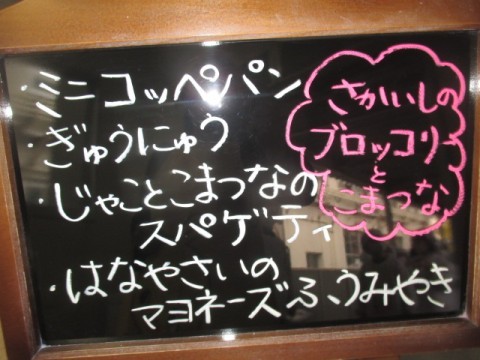 ・ミニコッペパン
・ぎゅうにゅう
・じゃことこまつなの
スパゲティ
・はなやさいの
マヨネーズふうみやき
さかいしの
ブロッコリー
と
こまつな